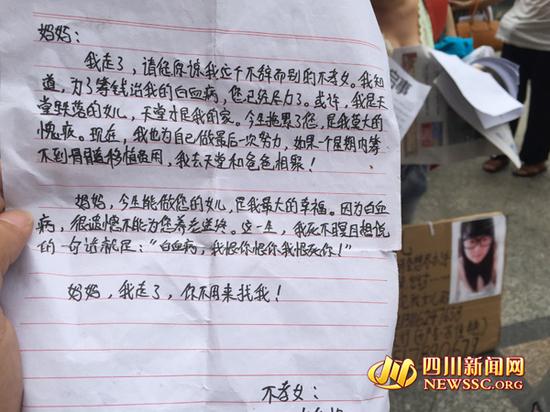 妈妈：
我走了，请您原谅我这个不辞而别的不孝女。我知
道，为了筹钱治我的白血病，您已经尽力了。或许，我是天
堂跌落的女儿，天堂才是我的家。今生拖累了您，是我莫大的
愧疚。现在，我也为自己做最后一次努力，如果一个星期内筹
不到骨髓移植费用，我去天堂和爸爸相聚！
妈妈，今生能做您的女儿，是我最大的幸福。因为白血
病，很遗憾不能为您养老送终。这一生，我死不瞑目想说
的一句话就是："白血病，我恨你恨你我恨死你！"
妈妈，我走了，你不用来找我！
不孝女：
四川新闻网
NEWSSC.ORG